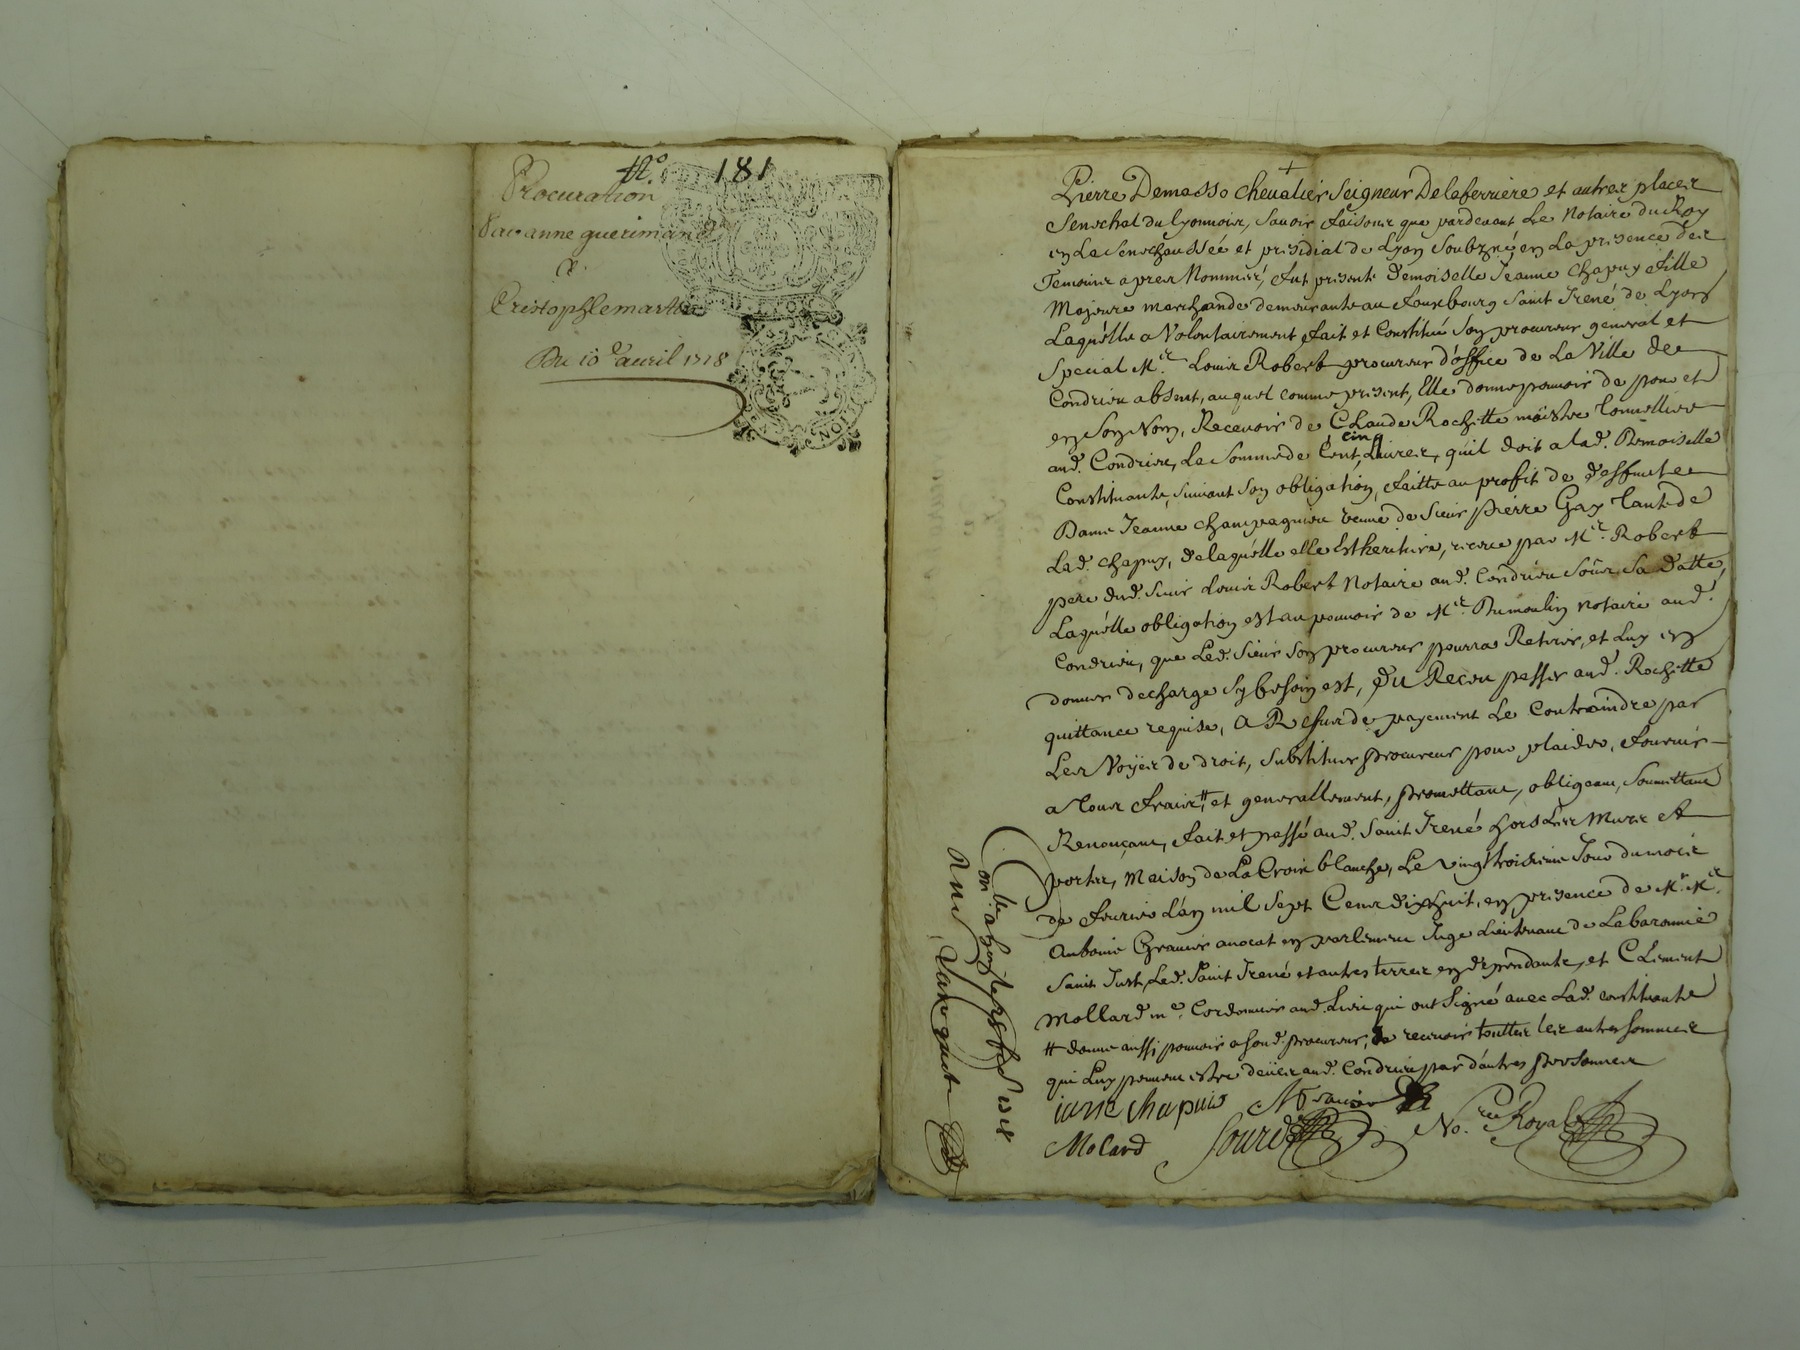 No. 181
Procuration
Par anne guerimand
a
Cristophle martin
Du 10e auril 1718
Pierre Demasso cheualier Seigneur Delaferriere et autres places
Seneschal du Lyonnois, sauoir faisons que pardeuant Le Notaire du Roy
en La Senechaussée et presidial de Lyon Soubzné en La presence des
Temoins apres Nommés, fut presente Demoiselle Jeanne Chapuy fille
Majeure marchande demeurante au fauxbourg Saint Irené de Lyon
Laquelle a Volontairement fait et Constitué Son procureur general et
Special Mr. Louis Robert procureur d'office de La Ville de
Condrieu absent, auquel comme present, Elle donne pouuoir de pour et
en Son Nom, Receuoir de CLaude Rochette maistre Tonnellier
aud. Condrieu, La Somme de Cent cinq Liures, quil doit a lad. Demoiselle
Constituante, suiuant son obligation, faitte au profit de deffuntee
Dame Jeanne Champagnieu veuue de Sieur pierre Gay Tante de
Lad. chapuy, de laquelle elle Est heritiere, receue par Mr. Robert
pere dud. Sieur Louis Robert Notaire aud. Condrieu Soûs Sa Datte,
Laquelle obligation est au pouuoir de Mr. Dumoulin notaire aud.
Condrieu, que Led. Sieur Son procureur pourra Retirer, et Luy en
donner decharge sy besoin est, du Receu passer aud. Rochette
quittance requise, A Refus de payement Le Contraindre par
Les Voÿes de droit, substituer procureur pour plaider, fournir
a Tous fraix, # et generallement, promettant, obligeant, Soumettant
Renonçant, fait et passé aud. Saint Irené hors Les Murs et
portes, Maison de La Croix blanche, Le vingt troisieme Jour du mois
de feurier L'an mil Sept Cens dix huit, en presence de Mr. Mr.
Anthoine Grauier auocat en parlement Juge Lieutenant de La baronnie
Saint Just, Led. Saint Irené et autres terres en dependante, et CLement
Mollard me. Cordonnier aud. Lieu qui ont Signé auec Lad. constituante
# donne aussi pouuoir a sond. procureur, de receuoir touttes Les autres sommes
qui Luy peuuent estre deües aud. Condrieu par d'autres personnes
iane Chapuis
Molard
Sourd
No.re Royal